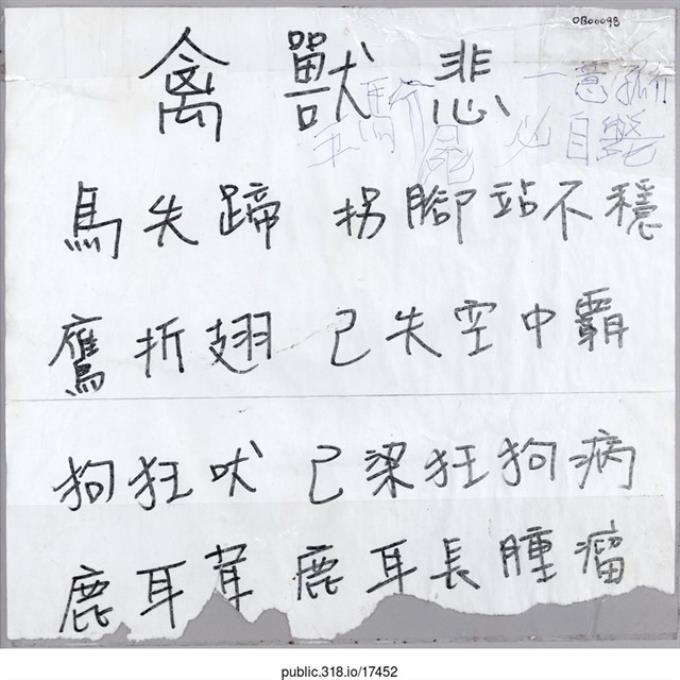 OB00098
禽獸悲
一意孤行
必自斃
馬失蹄 拐腳站不穩
鷹折翅 已失空中霸
狗狂吠 已梁狂狗病
鹿耳茸 鹿耳長腫瘤
public.318.io/17452